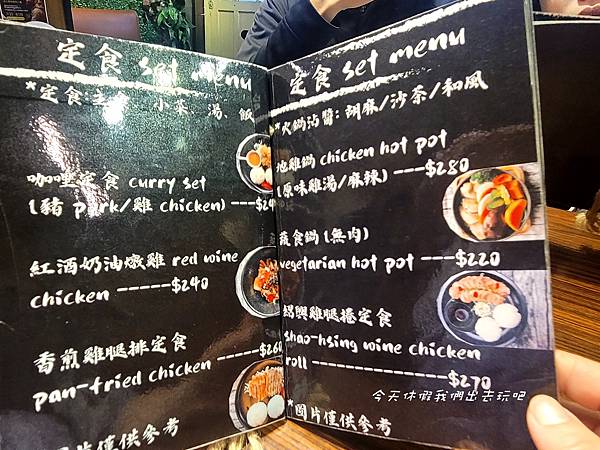 定食 set menu
*定食 小菜、湯、飯
咖哩定食 curry set
(豬 pork/雞 chicken) ---$24
紅酒奶油燉雞 red wine
chicken -----$240
香煎雞腿排定食
pan-fried chicken -----$260
*圖片僅供參考
定食 set menu
*火鍋沾醬:胡麻/沙茶/和風
地雞鍋 chicken hot pot
(原味雞湯/麻辣) ---$280
蔬食鍋(無肉)
vegetarian hot pot ---$220
紹興雞腿捲定食
shao-hsing wine chicken
roll ---------------$270
*圖片僅供參考
今天休假我們出去玩吧